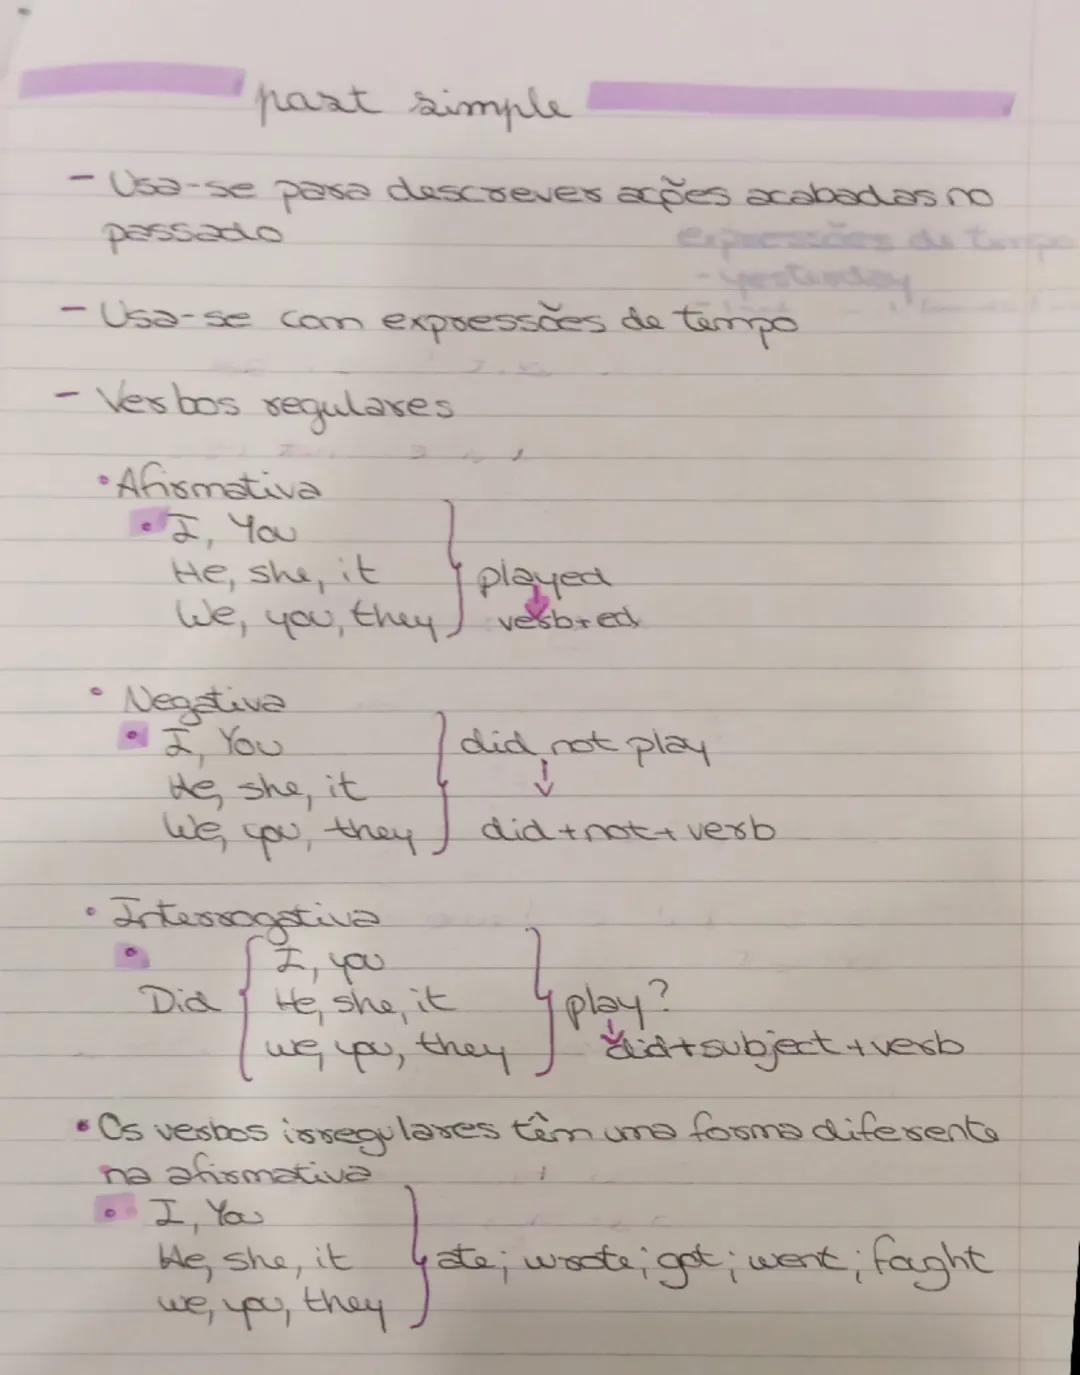 past simple
- Usa-se para descrever ações acabadas no
passado
expressões de tempo
- yesterday
- Usa-se com expressões de tempo
- Verbos regulares
• Afirmativa
• I, You
He, she, it
We, you, they
played
verb+ed
• Negativa
• I, You
He, she, it
We, you, they
did not play
did+not+verb
• Interrogativa
• I, you
Did He, she, it play?
we, you, they did+subject+verb
• Os verbos irregulares têm uma forma diferente
na afirmativa
• I, You
He, she, it ate; wrote; got; went; faght
we, you, they